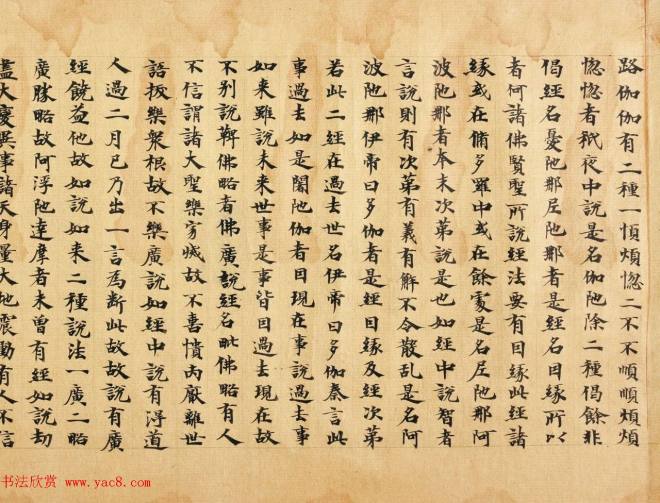 路伽伽有二種一順煩惚二不不順順煩煩
惚惚者秖夜中説是名伽陁除二種偈餘非
偈經名憂陁那尼陁那者是經名曰緣所以
者何諸佛賢聖所説經法要有曰緣此經諸
緣或在脩多羅中或在餘處是名尼陁那阿
波陁那者本末次第説是也如經中説智者
言説則有次第有義有解不令散乱是名阿
波陁那伊帝曰多伽者是經曰緣及經次第
若此二經在過去世名伊帝曰多伽秦言此
事過去如是闍陁伽者曰現在事説過去事
如来雖説未来世事是事皆曰過去現在故
不別説鞞佛略者佛廣説經名毗佛略有人
不信謂諸大聖樂寂滅故不憙憒丙厭離世
語扳樂衆根故不樂廣説如經中説有得道
人過二月已乃出一言為断此故故説有廣
經饒益他故如説如来二種説法一廣二略
廣勝略故阿浮陁達摩者未曾有經如説劫
盡大變異事諸天身量大地震動有人不信
书法欣赏 www.yac8.com